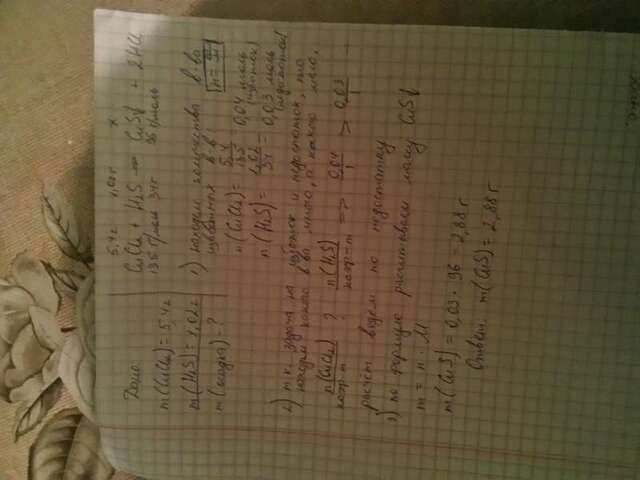 Дано:
m(CuCl₂) = 5,4г
m(H₂S) = 1,02г
m(осадка) = ?
5,4г 1,02г x
CuCl₂ + H₂S → CuS↓ + 2HCl
135 г/моль 34г 96 г/моль
1) находим количество в-ва
в-в n = m/M
n(CuCl₂) = 5,4/135 = 0,04 моль (избыток)
n(H₂S) = 1,02/34 = 0,03 моль (недостаток)
2) т.к. задача на избыток и недостаток, то
находим какого в-ва много, а какого мало,
n(CuCl₂)/коэф-т ? n(H₂S)/коэф-т => 0,04/1 > 0,03/1
расчёт ведем по недостатку
3) по формуле расчитываем массу CuS↓
m = n · M
m(CuS) = 0,03 · 96 = 2,88г
Ответ: m(CuS) = 2,88г